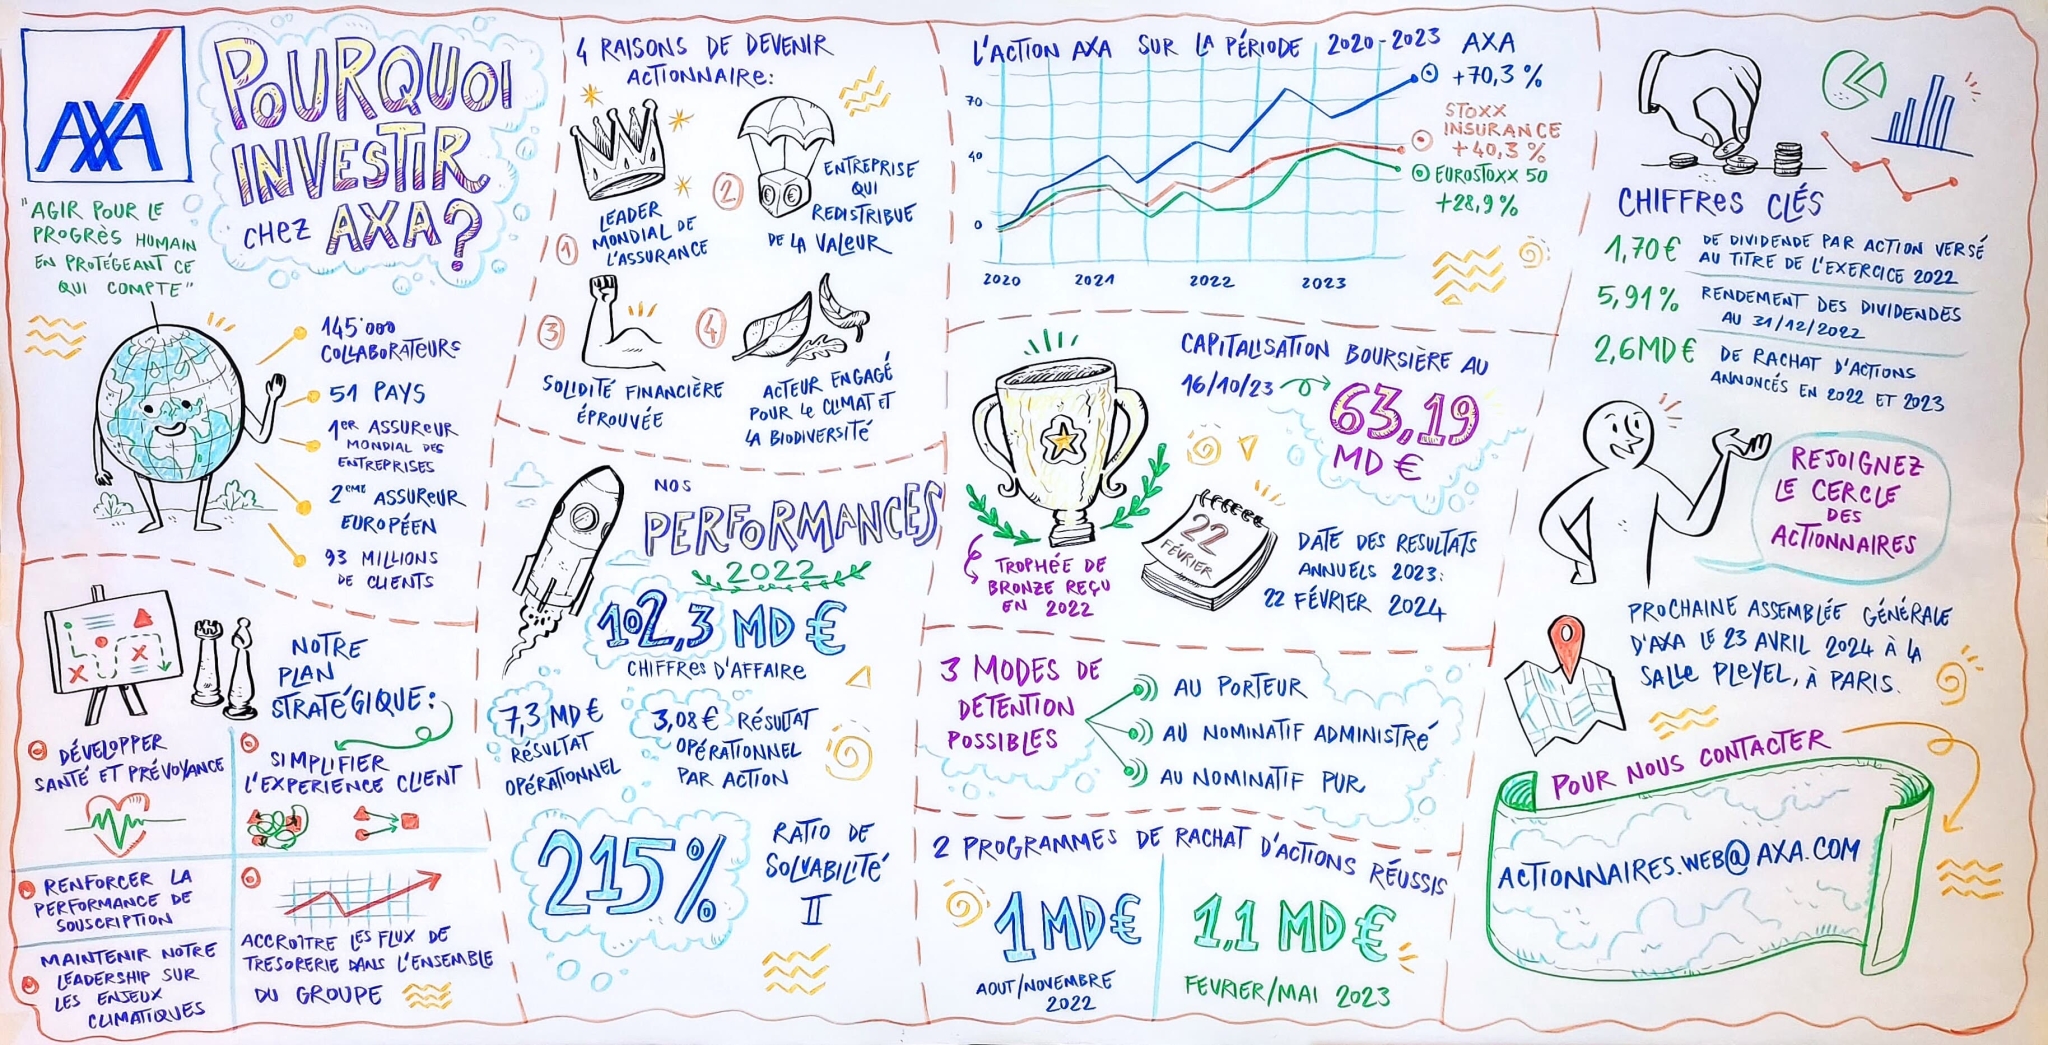 AXA
POURQUOI
INVESTIR
CHEZ AXA?
"AGIR POUR LE
PROGRÈS HUMAIN
EN PROTÉGEANT CE
QUI COMPTE"
145'000
COLLABORATEURS
51 PAYS
1ER ASSUREUR
MONDIAL DES
ENTREPRISES
2EME ASSUREUR
EUROPÉEN
93 MILLIONS
DE CLIENTS
NOTRE
PLAN
STRATÉGIQUE:
DÉVELOPPER
SANTÉ ET PRÉVOYANCE
SIMPLIFIER
L'EXPERIENCE CLIENT
RENFORCER LA
PERFORMANCE DE
SOUSCRIPTION
MAINTENIR NOTRE
LEADERSHIP SUR
LES ENJEUX
CLIMATIQUES
ACCROÎTRE LES FLUX DE
TRESORERIE DANS L'ENSEMBLE
DU GROUPE
4 RAISONS DE DEVENIR
ACTIONNAIRE:
1
LEADER
MONDIAL DE
L'ASSURANCE
2
ENTREPRISE
QUI
REDISTRIBUE
DE LA VALEUR
3
SOLIDITÉ FINANCIÈRE
ÉPROUVÉE
4
ACTEUR ENGAGÉ
POUR LE CLIMAT ET
LA BIODIVERSITÉ
NOS
PERFORMANCES
2022
102,3 MD €
CHIFFRES D'AFFAIRE
7,3 MD €
RÉSULTAT
OPÉRATIONNEL
3,08 € RÉSULTAT
OPÉRATIONNEL
PAR ACTION
215%
RATIO DE
SOLVABILITÉ
II
L'ACTION AXA SUR LA PÉRIODE 2020-2023
70
40
0
2020 2021 2022 2023
AXA
+70,3 %
STOXX
INSURANCE
+40,3 %
EUROSTOXX 50
+28,9%
TROPHÉE DE
BRONZE REÇU
EN 2022
CAPITALISATION BOURSIÈRE AU
16/10/23
63,19
MD €
22
FÉVRIER
DATE DES RESULTATS
ANNUELS 2023:
22 FÉVRIER 2024
3 MODES DE
DÉTENTION
POSSIBLES
AU PORTEUR
AU NOMINATIF ADMINISTRÉ
AU NOMINATIF PUR
2 PROGRAMMES DE RACHAT D'ACTIONS RÉUSSIS
1 MD€
AOUT/NOVEMBRE
2022
1,1 MD €
FEVRIER/MAI 2023
CHIFFRES CLÉS
1,70€ DE DIVIDENDE PAR ACTION VERSÉ
AU TITRE DE L'EXERCICE 2022
5,91% RENDEMENT DES DIVIDENDES
AU 31/12/2022
2,6MD€ DE RACHAT D'ACTIONS
ANNONCÉS EN 2022 ET 2023
REJOIGNEZ
LE CERCLE
DES
ACTIONNAIRES
PROCHAINE ASSEMBLÉE GÉNÉRALE
D'AXA LE 23 AVRIL 2024 À LA
SALLE PLEYEL, À PARIS.
POUR NOUS CONTACTER
ACTIONNAIRES.WEB@AXA.COM